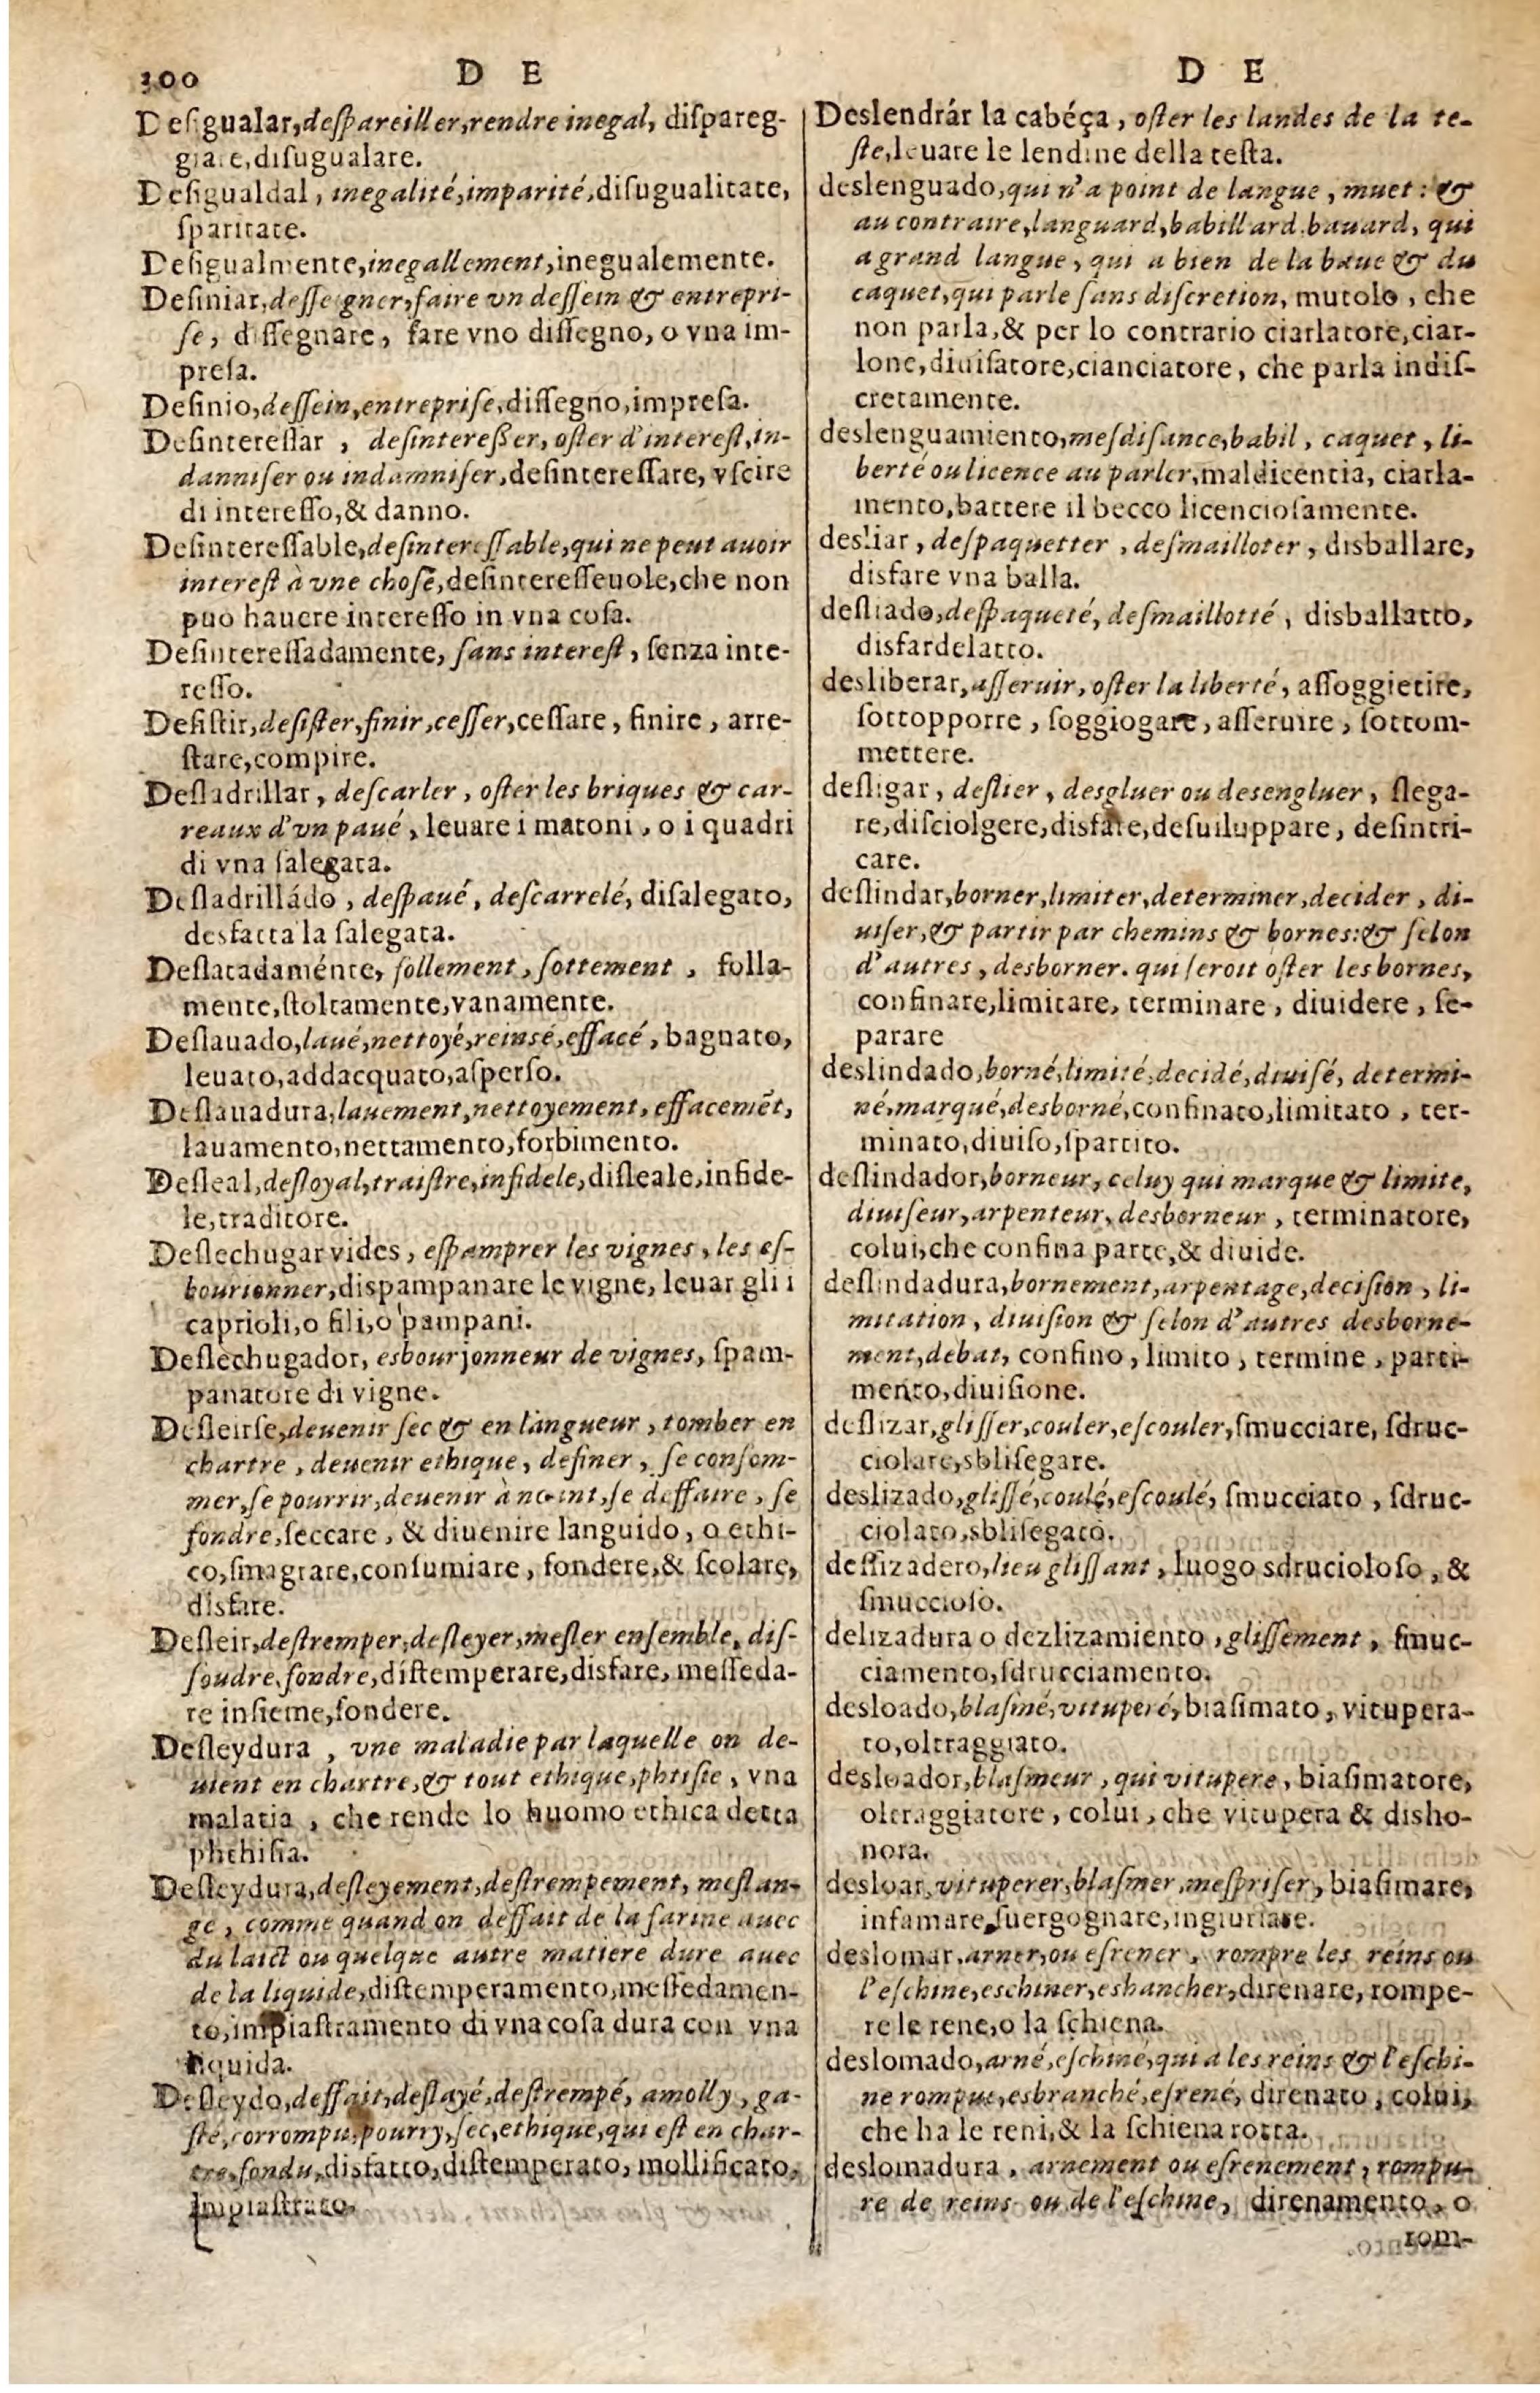 300 D E
Desigualar, despareiller, rendre inegal, dispareg-
giare, disugualare.
Desigualdal, inegalité, imparité, disugualitate,
sparitate.
Desigualmente, inegallement, inegualemente.
Desiniar, desseigner, faire vn dessein & entrepri-
se, dissegnare, fare vno dissegno, o vna im-
presa.
Desinio, dessein, entreprise, dissegno, impresa.
Desinteressar, desinteresser, oster d'interest, in-
danniser ou indamniser, desinteressare, vscire
di interesso, & danno.
Desinteressable, desinteressable, qui ne peut auoir
interest à vne chose, desinteresseuole, che non
puo hauere interesso in vna cosa.
Desinteressadamente, sans interest, senza inte-
resso.
Desistir, desister, finir, cesser, cessare, finire, arre-
stare, compire.
Desladrillar, descarler, oster les briques & car-
reaux d'vn paué, leuare i matoni, o i quadri
di vna salegata.
Desladrilládo, despaué, descarrelé, disalegato,
desfatta la salegata.
Deslatadaménte, follement, sottement, folla-
mente, stoltamente, vanamente.
Deslauado, laué, nettoyé, reinsé, effacé, bagnato,
leuato, addacquato, asperso.
Deslauadura, lauement, nettoyement, effacemẽt,
lauamento, nettamento, forbimento.
Desleal, desloyal, traistre, infidele, disleale, infide-
le, traditore.
Deslechugar vides, espamprer les vignes, les es-
bourionner, dispampanare le vigne, leuar gli i
caprioli, o fili, o pampani.
Deslechugador, esbourjonneur de vignes, spam-
panatore di vigne.
Desleirse, deuenir sec & en langueur, tomber en
chartre, deuenir ethique, definer, se consom-
mer, se pourrir, deuenir à neant, se deffaire, se
fondre, seccare, & diuenire languido, o ethi-
co, smagrare, consumiare, fondere, & scolare,
disfare.
Desleir, destremper, desleyer, mesler ensemble, dis-
soudre, fondre, distemperare, disfare, messeda-
re insieme, fondere.
Desleydura, vne maladie par laquelle on de-
uient en chartre, & tout ethique, phtisie, vna
malatia, che rende lo huomo ethica detta
phthisia.
Desleydura, desleyement, destrempement, meslan-
ge, comme quand on deffait de la farine auec
du laict ou quelque autre matiere dure auec
de la liquide, distemperamento, messedamen-
to, impiastramento di vna cosa dura con vna
liquida.
Desleydo, deffait, deslayé, destrempé, amolly, ga-
sté, corrompu, pourry, sec, ethique, qui est en char-
tre, fondu, disfatto, distemperato, mollificato,
impiastrato.
D E
Deslendrár la cabéça, oster les landes de la te-
ste, leuare le lendine della testa.
deslenguado, qui n'a point de langue, muet: &
au contraire, languard, babillard, bauard, qui
a grand langue, qui a bien de la baue & du
caquet, qui parle sans discretion, mutolo, che
non parla, & per lo contrario ciarlatore, ciar-
lone, diuisatore, cianciatore, che parla indis-
cretamente.
deslenguamiento, mesdisance, babil, caquet, li-
berté ou licence au parler, maldicentia, ciarla-
mento, battere il becco licenciosamente.
desliar, despaquetter, desmailloter, disballare,
disfare vna balla.
desliado, despaqueté, desmaillotté, disballatto,
disfardelatto.
desliberar, asseruir, oster la liberté, assoggietire,
sottopporre, soggiogare, asseruire, sottom-
mettere.
desligar, deslier, desgluer ou desengluer, slega-
re, disciolgere, disfare, desuiluppare, desintri-
care.
deslindar, borner, limiter, determiner, decider, di-
uiser, & partir par chemins & bornes: & selon
d'autres, desborner. qui seroit oster les bornes,
confinare, limitare, terminare, diuidere, se-
parare
deslindado, borné, limité, decidé, diuisé, determi-
né, marqué, desborné, confinato, limitato, ter-
minato, diuiso, spartito.
deslindador, borneur, celuy qui marque & limite,
diuiseur, arpenteur, desborneur, terminatore,
colui, che confina parte, & diuide.
deslindadura, bornement, arpentage, decision, li-
mitation, diuision & selon d'autres desborne-
ment, debat, confino, limito, termine, parti-
mento, diuisione.
deslizar, glisser, couler, escouler, smucciare, sdruc-
ciolare, sblisegare.
deslizado, glissé, coulé, escoulé, smucciato, sdruc-
ciolato, sblisegato.
deslizadero, lieu glissant, luogo sdrucioloso, &
smuccioso.
delizadura o dezlizamiento, glissement, smuc-
ciamento, sdrucciamento.
desloado, blasmé, vituperé, biasimato, vitupera-
to, oltraggiato.
desloador, blasmeur, qui vitupere, biasimatore,
oltraggiatore, colui, che vitupera & disho-
nora.
desloar, vituperer, blasmer, mespriser, biasimare,
infamare, suergognare, ingiuriare.
deslomar, arner, ou esrener, rompre les reins ou
l'eschine, eschiner, eshancher, direnare, rompe-
re le rene, o la schiena.
deslomado, arné, eschiné, qui a les reins & l'eschi-
ne rompue, esbranché, esrené, direnato, colui,
che ha le reni, & la schiena rotta.
deslomadura, arnement ou esrenement, rompu-
re de reins ou de l'eschine, direnamento, o
rom-